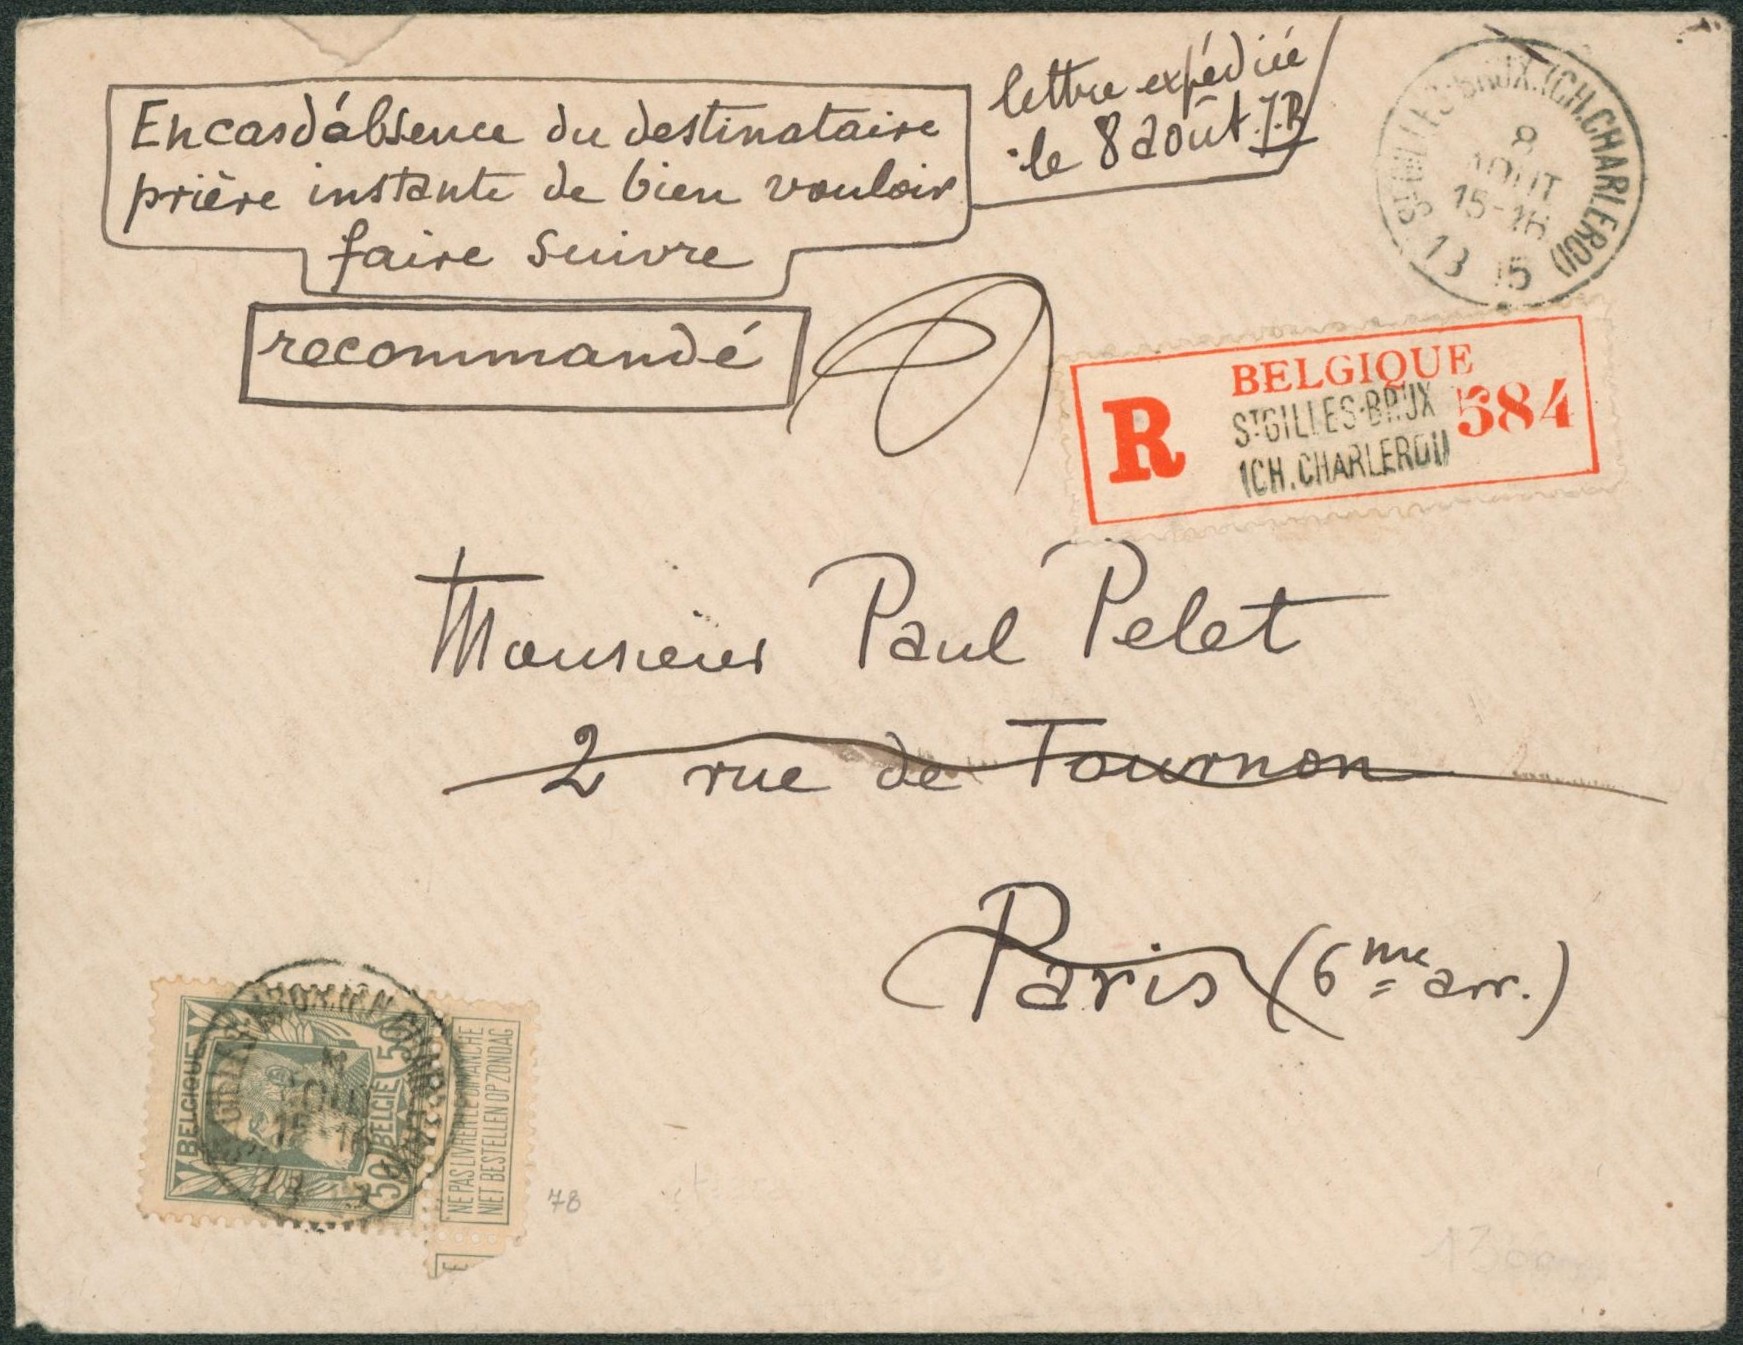 En cas d'absence du destinataire
prière instante de bien vouloir
faire suivre
lettre expédiée
le 8 août J.B
recommandé
ST GILLES-BRUX.(CH.CHARLEROI)
8
AOUT
15-16
13 15
BELGIQUE
R
ST GILLES-BRUX
(CH.CHARLEROI)
584
Monsieur Paul Pelet
2 rue de Tournon
Paris (6me arr.)
BELGIQUE
50 BELGIË 50
NE PAS LIVRER LE DIMANCHE
NIET BESTELLEN OP ZONDAG
78